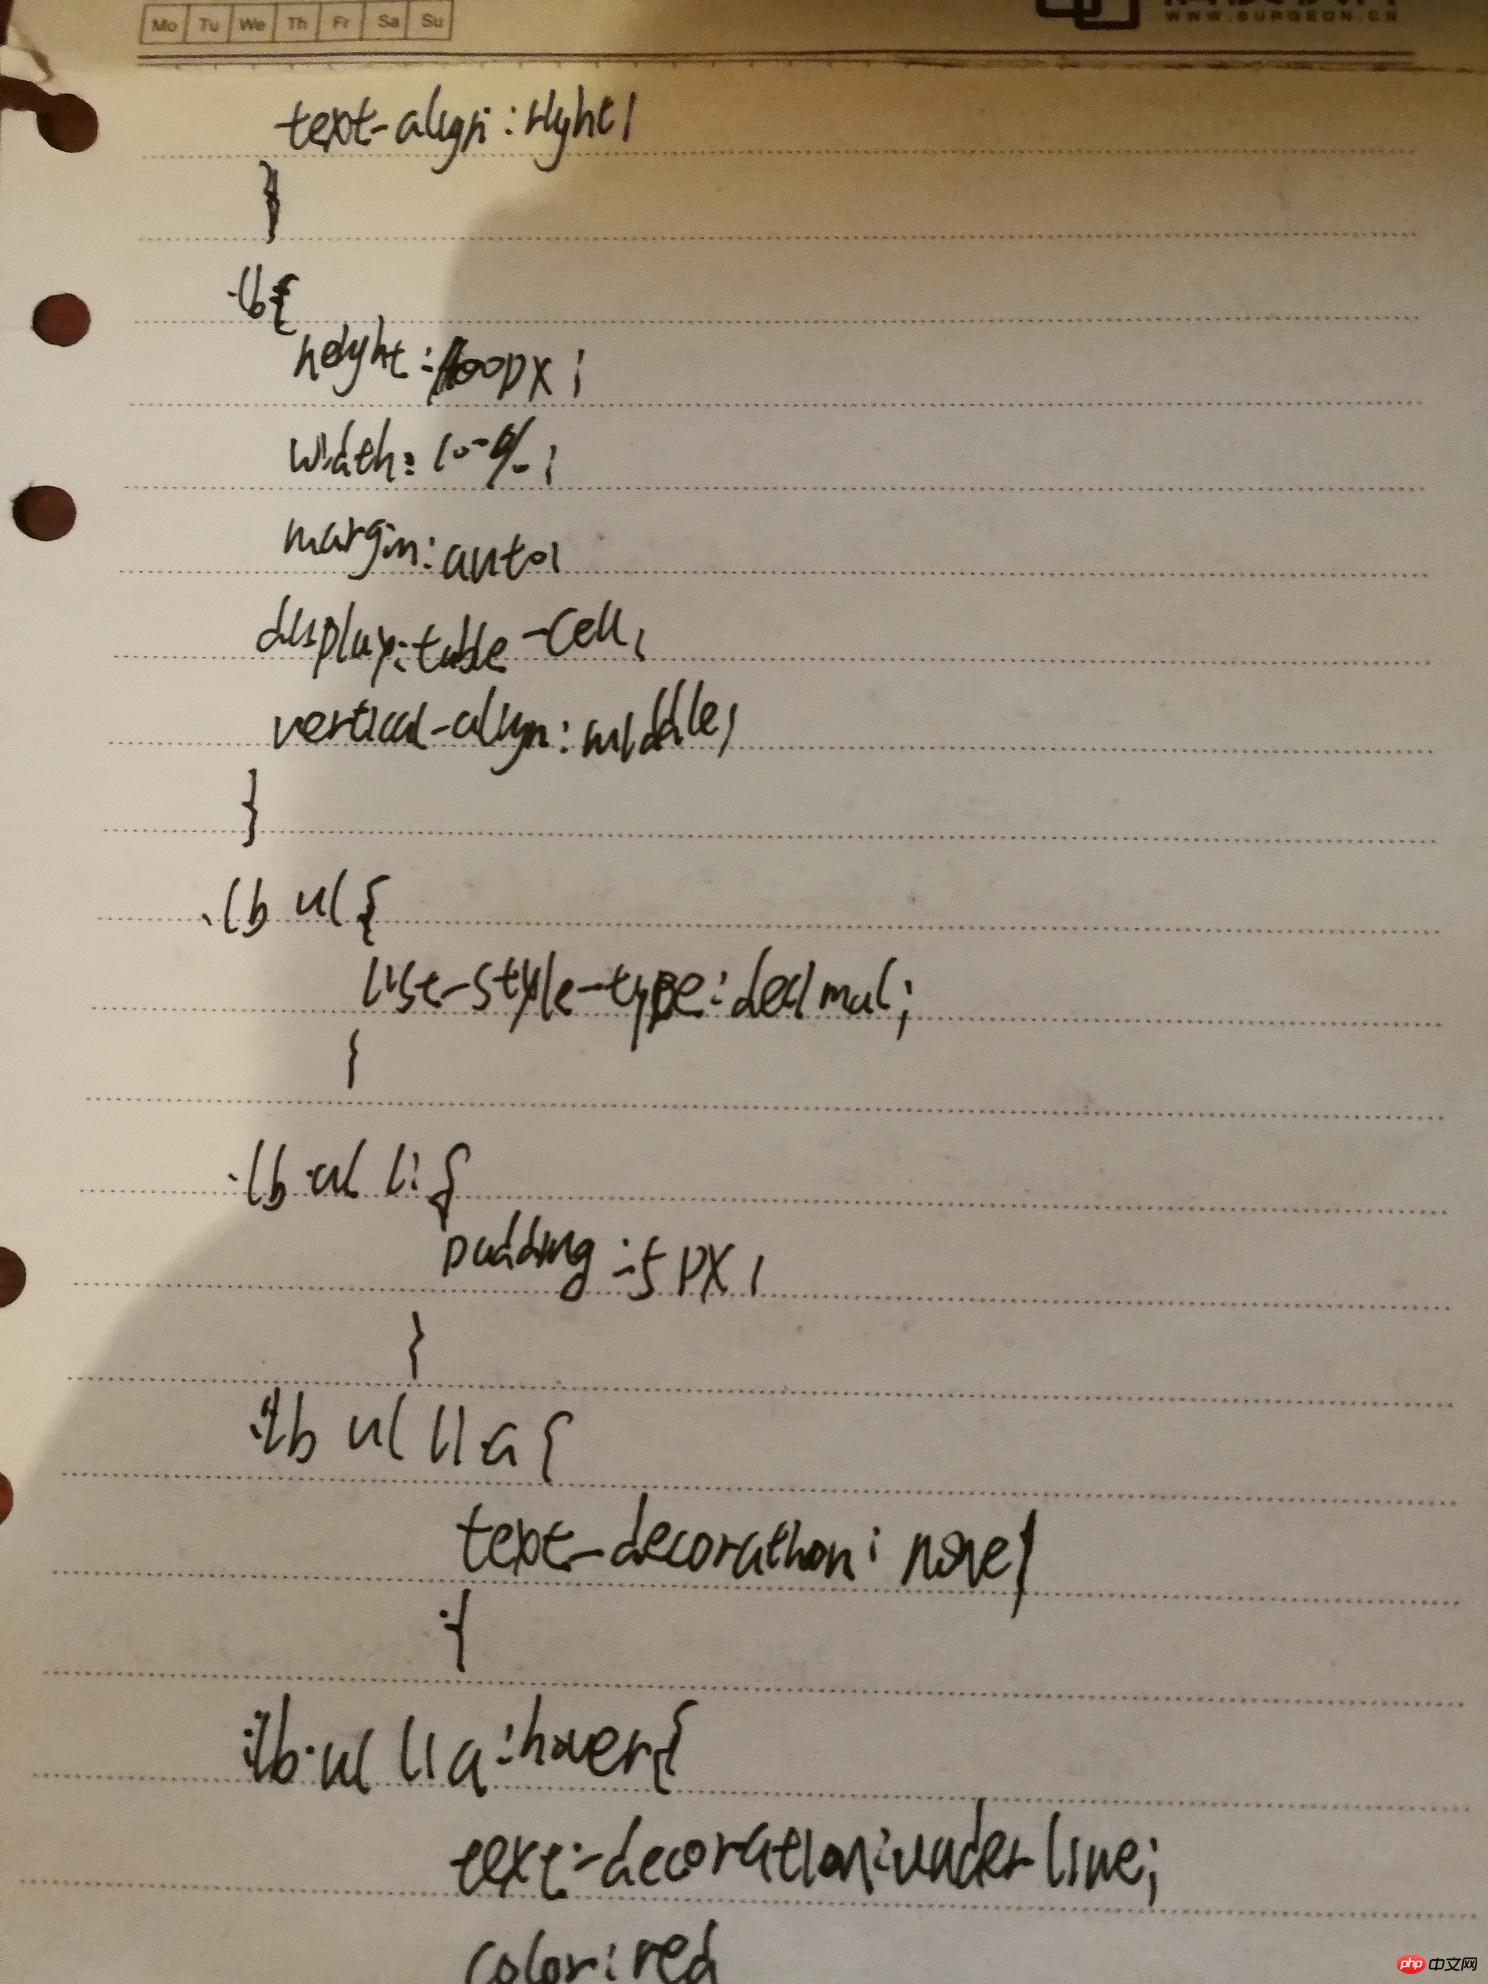 Mo Tu We Th Fr Sa Su
WWW.BURGEON.CN
text-align:right;
}
.lb{
height:100px;
width:100%;
margin:auto;
display:table-cell;
vertical-align:middle;
}
.lb ul{
list-style-type:decimal;
{
.lb ul li{
padding:5px;
}
.lb ul li a{
text-decoration:none;
}
.lb ul li a:hover{
text-decoration:underline;
color:red
php 中文网